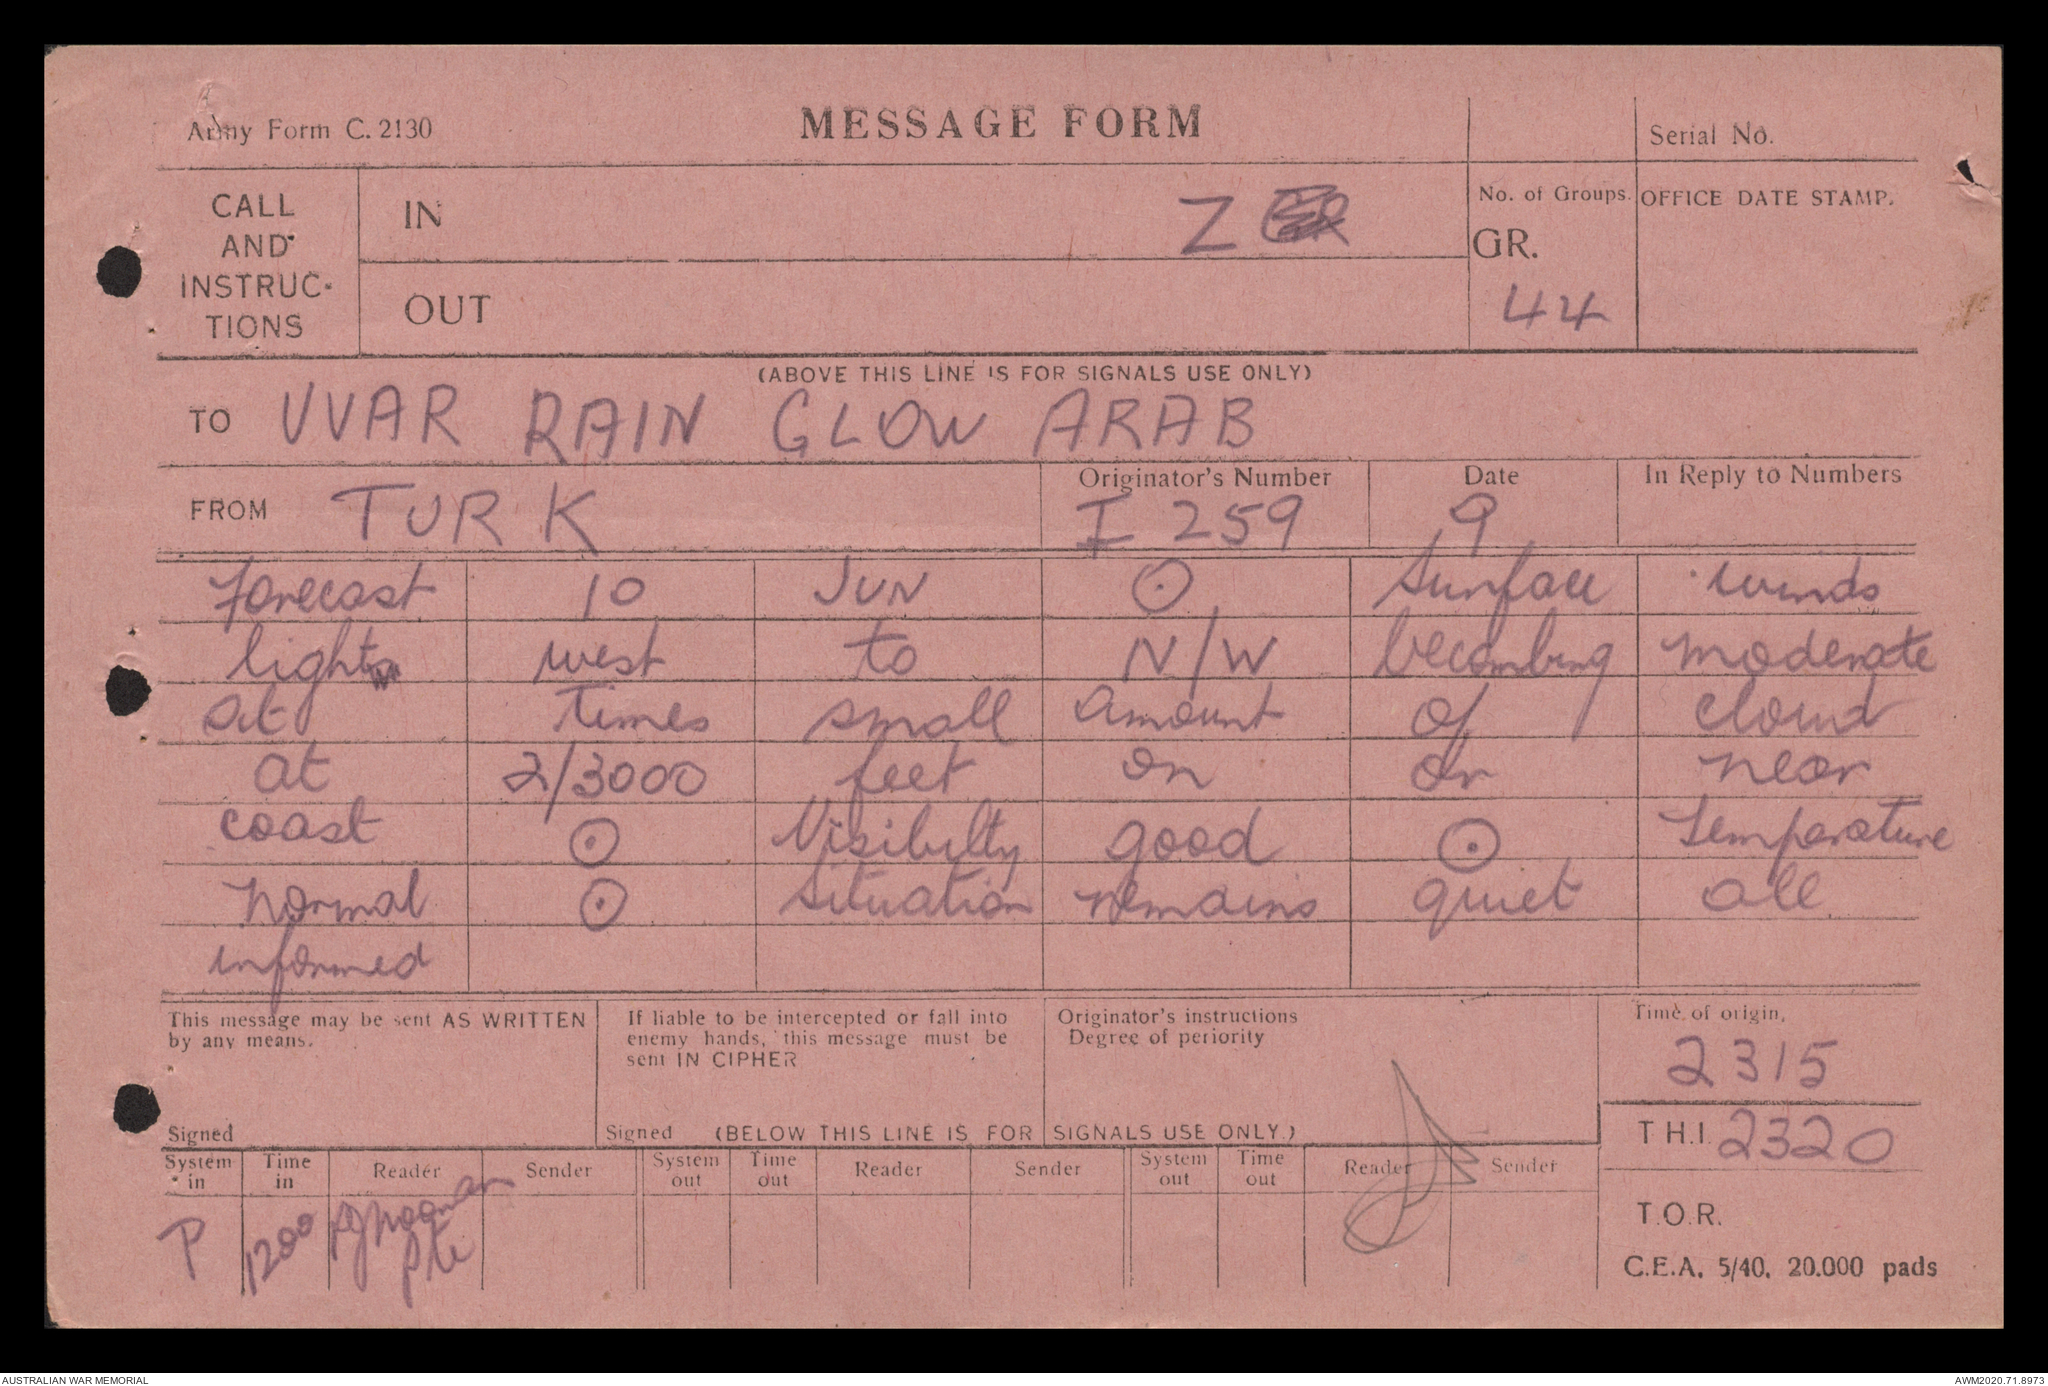 Army Form C. 2130
MESSAGE FORM
Serial No.
CALL
AND
INSTRUC-
TIONS
IN
Z
OUT
No. of Groups.
GR.
44
OFFICE DATE STAMP.
(ABOVE THIS LINE IS FOR SIGNALS USE ONLY)
TO VVAR RAIN GLOW ARAB
FROM TURK
Originator's Number
I 259
Date
9
In Reply to Numbers
Forecast 10 JUN ⊙ Surface winds
light west to N/W becoming moderate
at times small amount of cloud
at 2/3000 feet on or near
coast ⊙ Visibilty good ⊙ Temperature
normal ⊙ Situation remains quiet all
informed
This message may be sent AS WRITTEN
by any means.
Signed
If liable to be intercepted or fall into
enemy hands, this message must be
sent IN CIPHER
Signed
Originator's instructions
Degree of periority
(BELOW THIS LINE IS FOR SIGNALS USE ONLY.)
Time of origin,
2315
T H.I. 2320
T.O.R.
System in Time in Reader Sender System out Time out Reader Sender System out Time out Reader Sender
P 1200
Pte
C.E.A. 5/40. 20.000 pads
AUSTRALIAN WAR MEMORIAL
AWM2020.71.8973